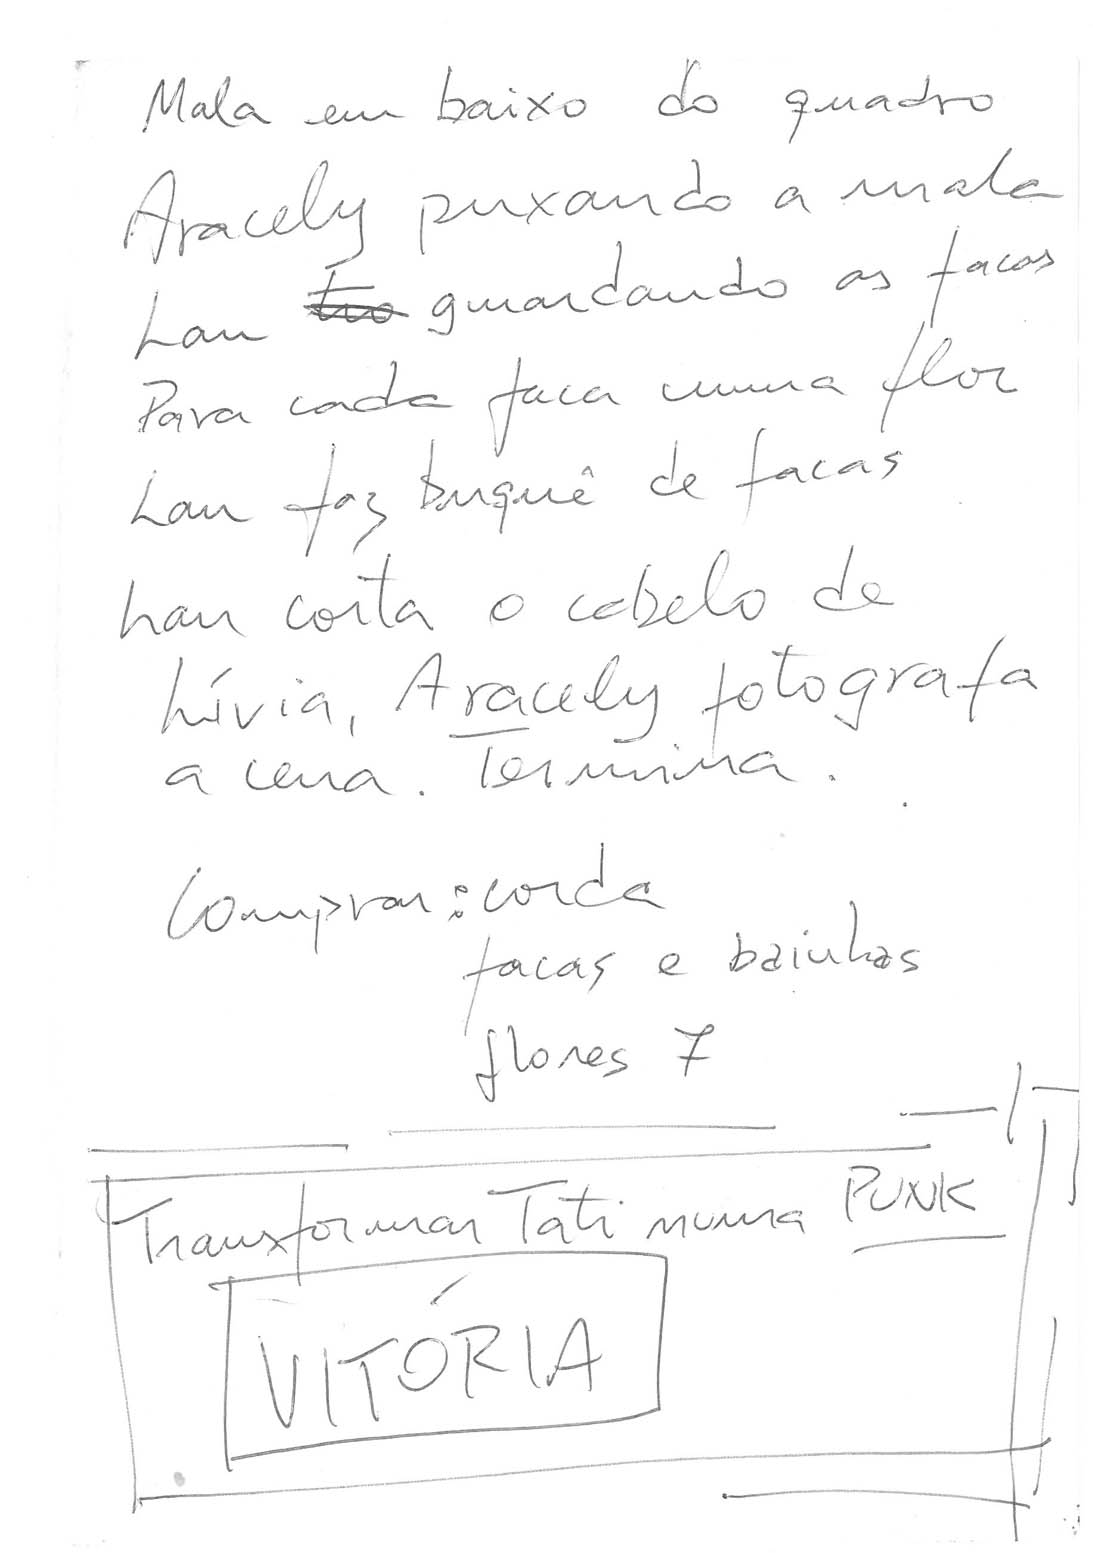 Mala em baixo do quadro
Aracely puxando a mala
Lau guardando as facas
Para cada faca numa flor
Lau faz buquê de facas
Lau corta o cabelo de
Lívia, Aracely fotografa
a cena. Termina.
Comprar: corda
facas e bainhas
flores 7
Transformar Tati numa PUNK
VITÓRIA